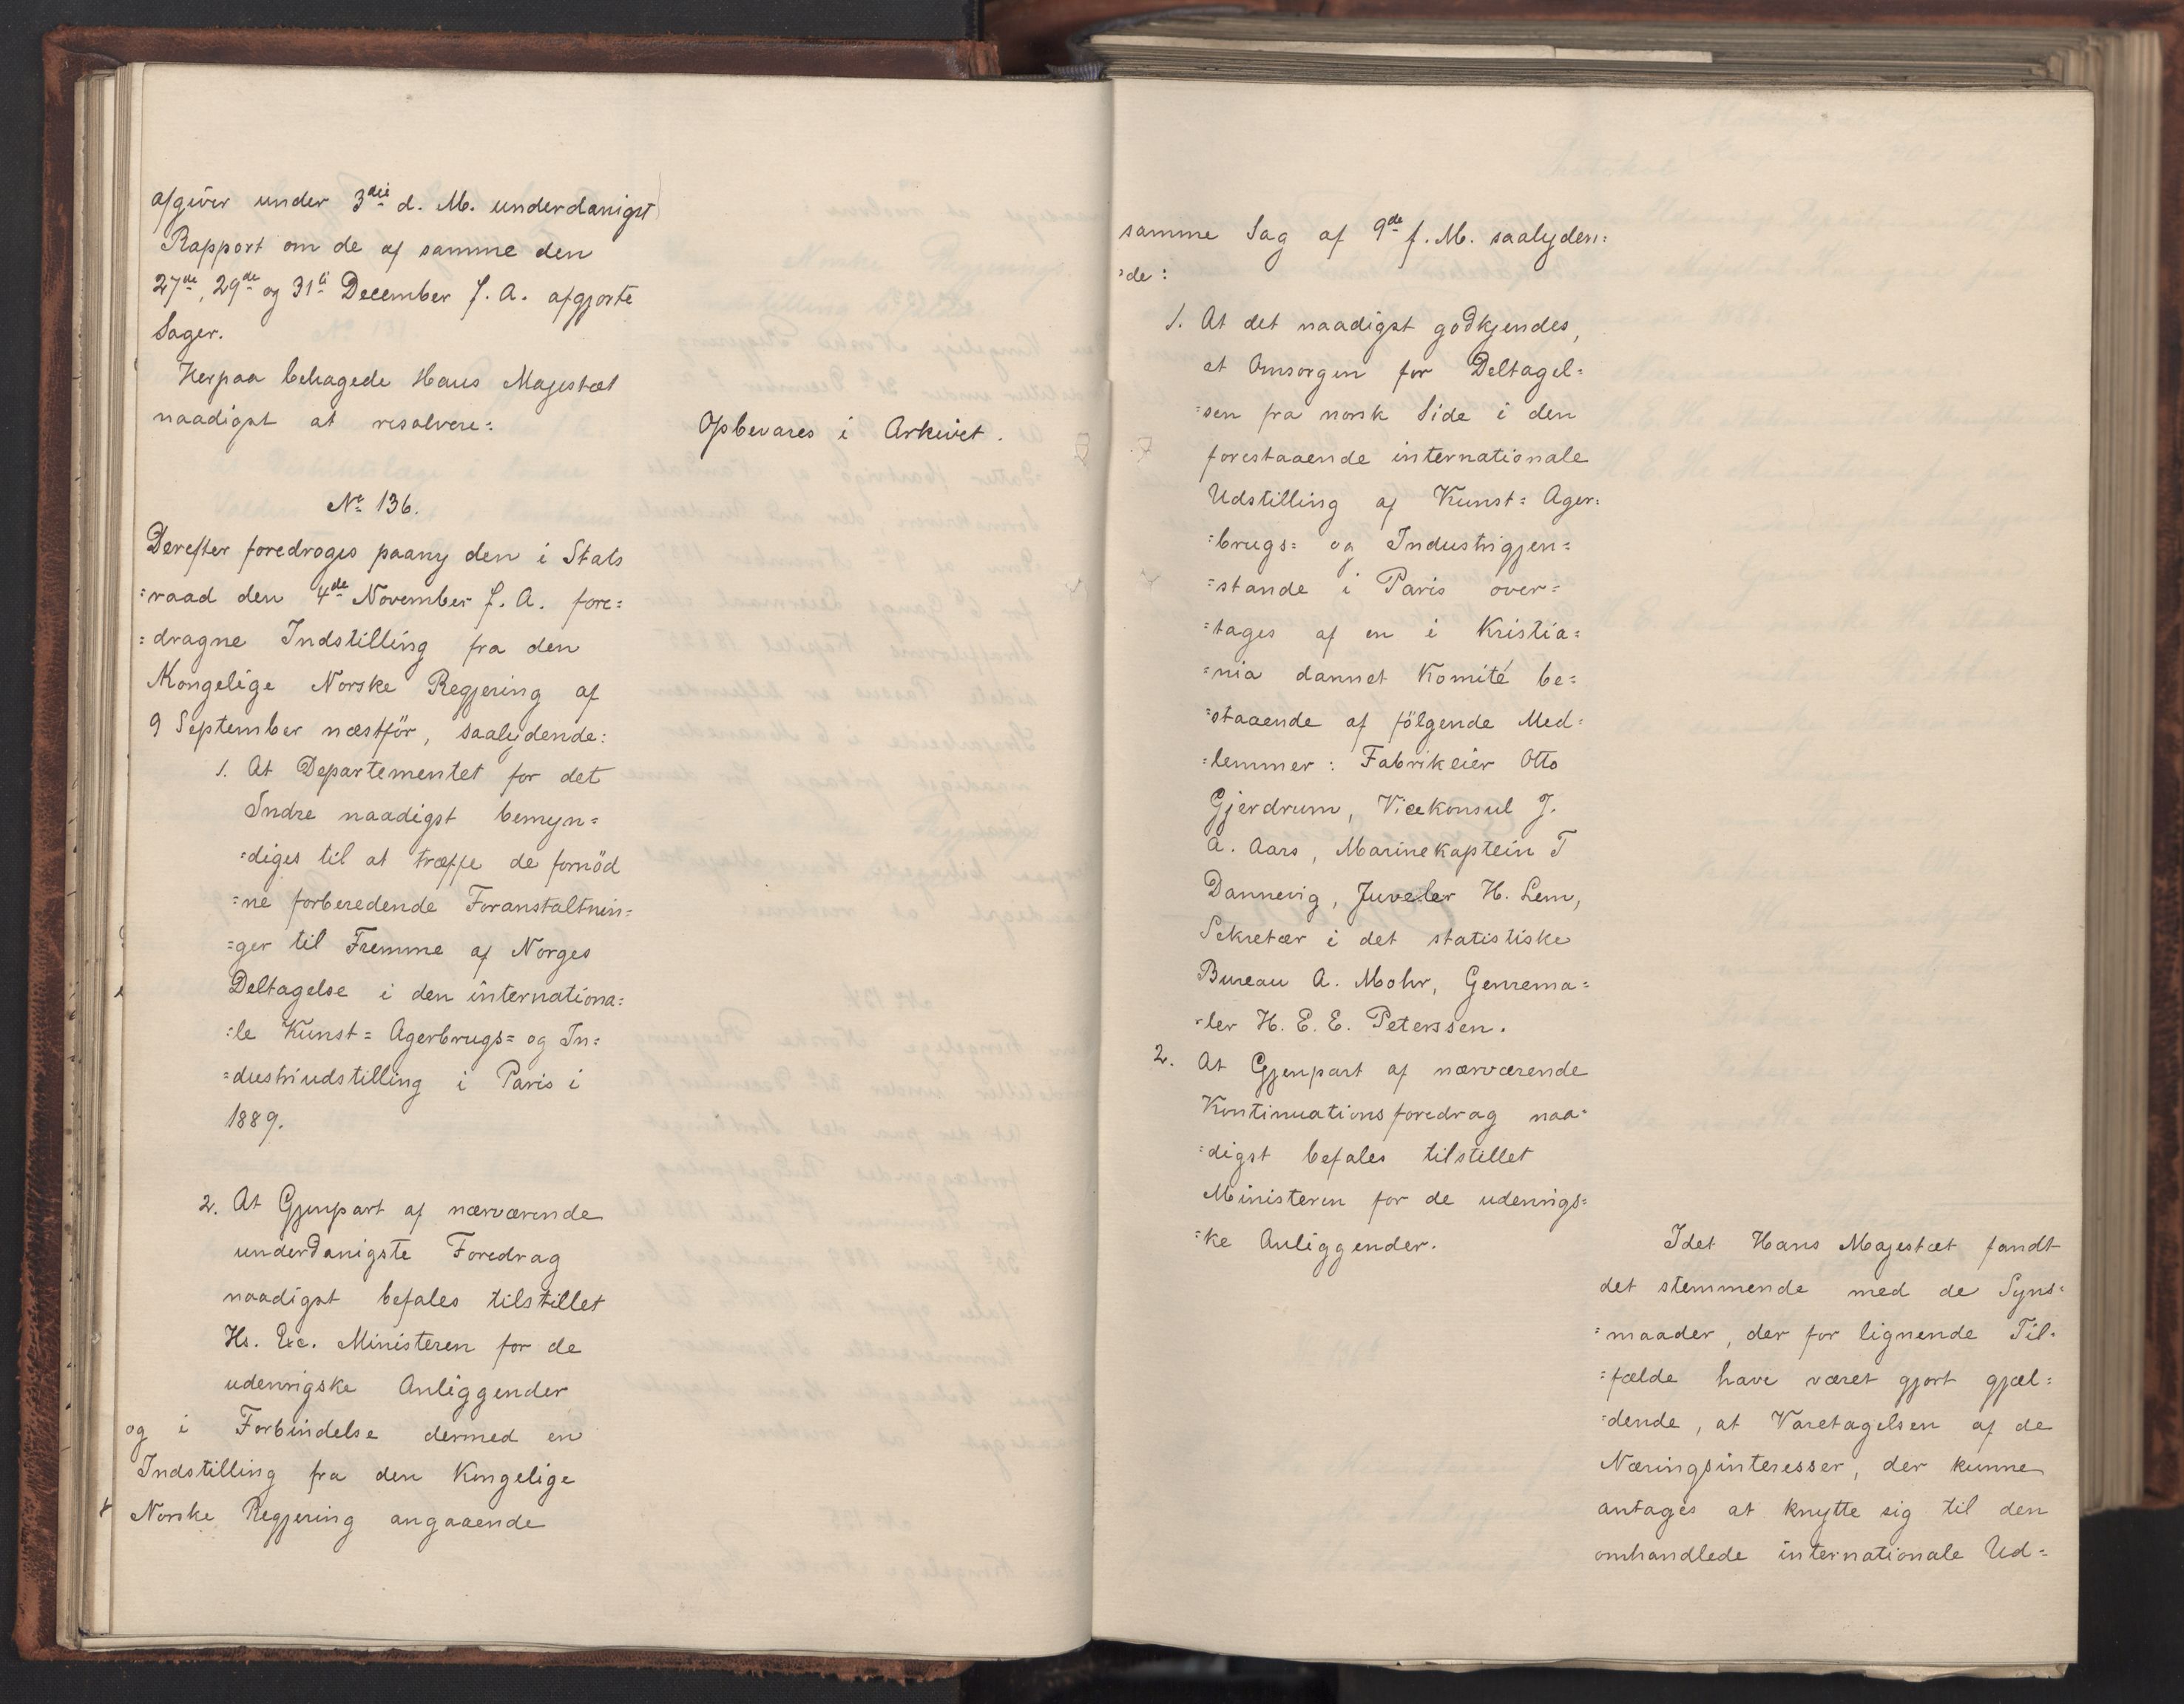 afgiver under 3die d. M. underdanigst
Rapport om de af samme den
27de, 29de og 31te December f. A. afgjorte
Sager.
Herpaa behagede Hans Majestæt
naadigst at resolvere:
Opbevares i Arkivet.
No 136.
Derefter foredroges paany den i Stats
=raad den 4de November f. A. fore=
=dragne Indstilling fra den
Kongelige Norske Regjering af
9 September næstför, saalydende:
1. At Departementet for det
Indre naadigst bemyn=
=diges til at træffe de fornöd
=ne forberedende Foranstaltnin=
=ger til Fremme af Norges
Deltagelse i den internationa=
=le Kunst= Agerbrugs= og In=
=dustriudstilling i Paris i
1889.
2. At Gjenpart af nærværende
underdanigste Foredrag
naadigst befales tilstillet
Hs. Exc. Ministeren for de
udenrigske Anliggender
og i Forbindelse dermed en
Indstilling fra den Kongelige
Norske Regjering angaaende
samme Sag af 9de f. M. saalyden=
=de:
1. At det naadigst godkjendes,
at Omsorgen for Deltagel=
=sen fra norsk Side i den
forestaaende internationale
Udstilling af Kunst= Ager=
=brugs= og Industrigjen=
=stande i Paris over=
=tages af en i Kristia=
=nia dannet Komité be=
=staaende af fölgende Med=
=lemmer: Fabrikeier Otto
Gjerdrum, Vicekonsul J.
A. Aars, Marinekaptein T
Dannevig, Juveler H. Lem,
Sekretær i det statistiske
Bureau A. Mohr, Genrema=
=ler H. E. E. Peterssen.
2. At Gjenpart af nærværende
Kontinuationsforedrag naa=
=digst befales tilstillet
Ministeren for de udenrigs=
=ke Anliggender.
Idet Hans Majestæt fandt
det stemmende med de Syns=
=maader, der for lignende Til=
=fælde have været gjort gjæl=
=dende, at Varetagelsen af de
Næringsinteresser, der kunne
antages at knytte sig til den
omhandlede internationale Ud=